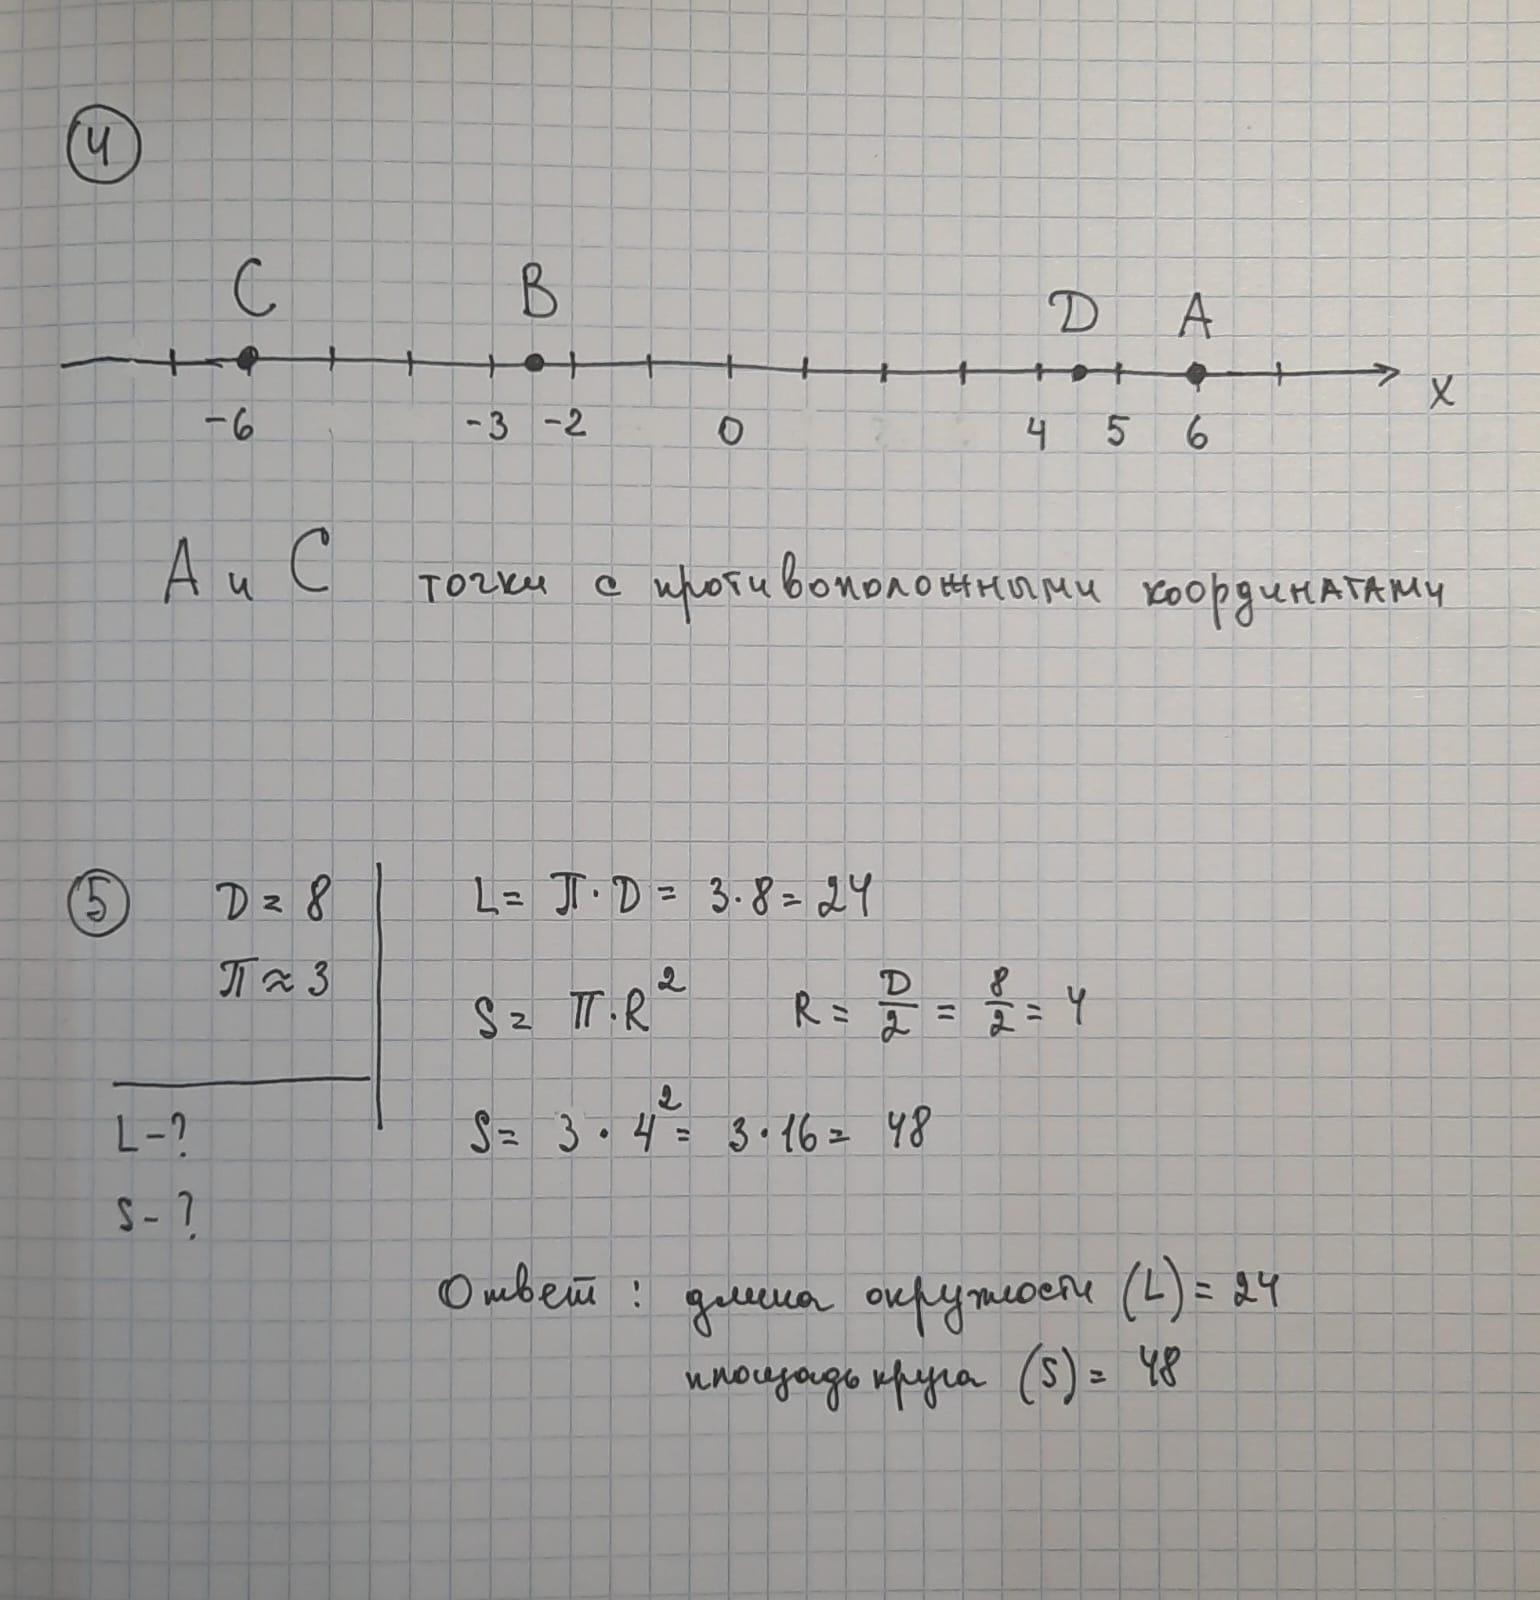 4
C B D A
-6 -3 -2 0 4 5 6 x
A и C точки с противоположными координатами
5 D = 8 L = π · D = 3 · 8 = 24
π ≈ 3
S = π · R² R = D/2 = 8/2 = 4
L - ? S = 3 · 4² = 3 · 16 = 48
S - ?
Ответ : длина окружности (L) = 24
площадь круга (S) = 48